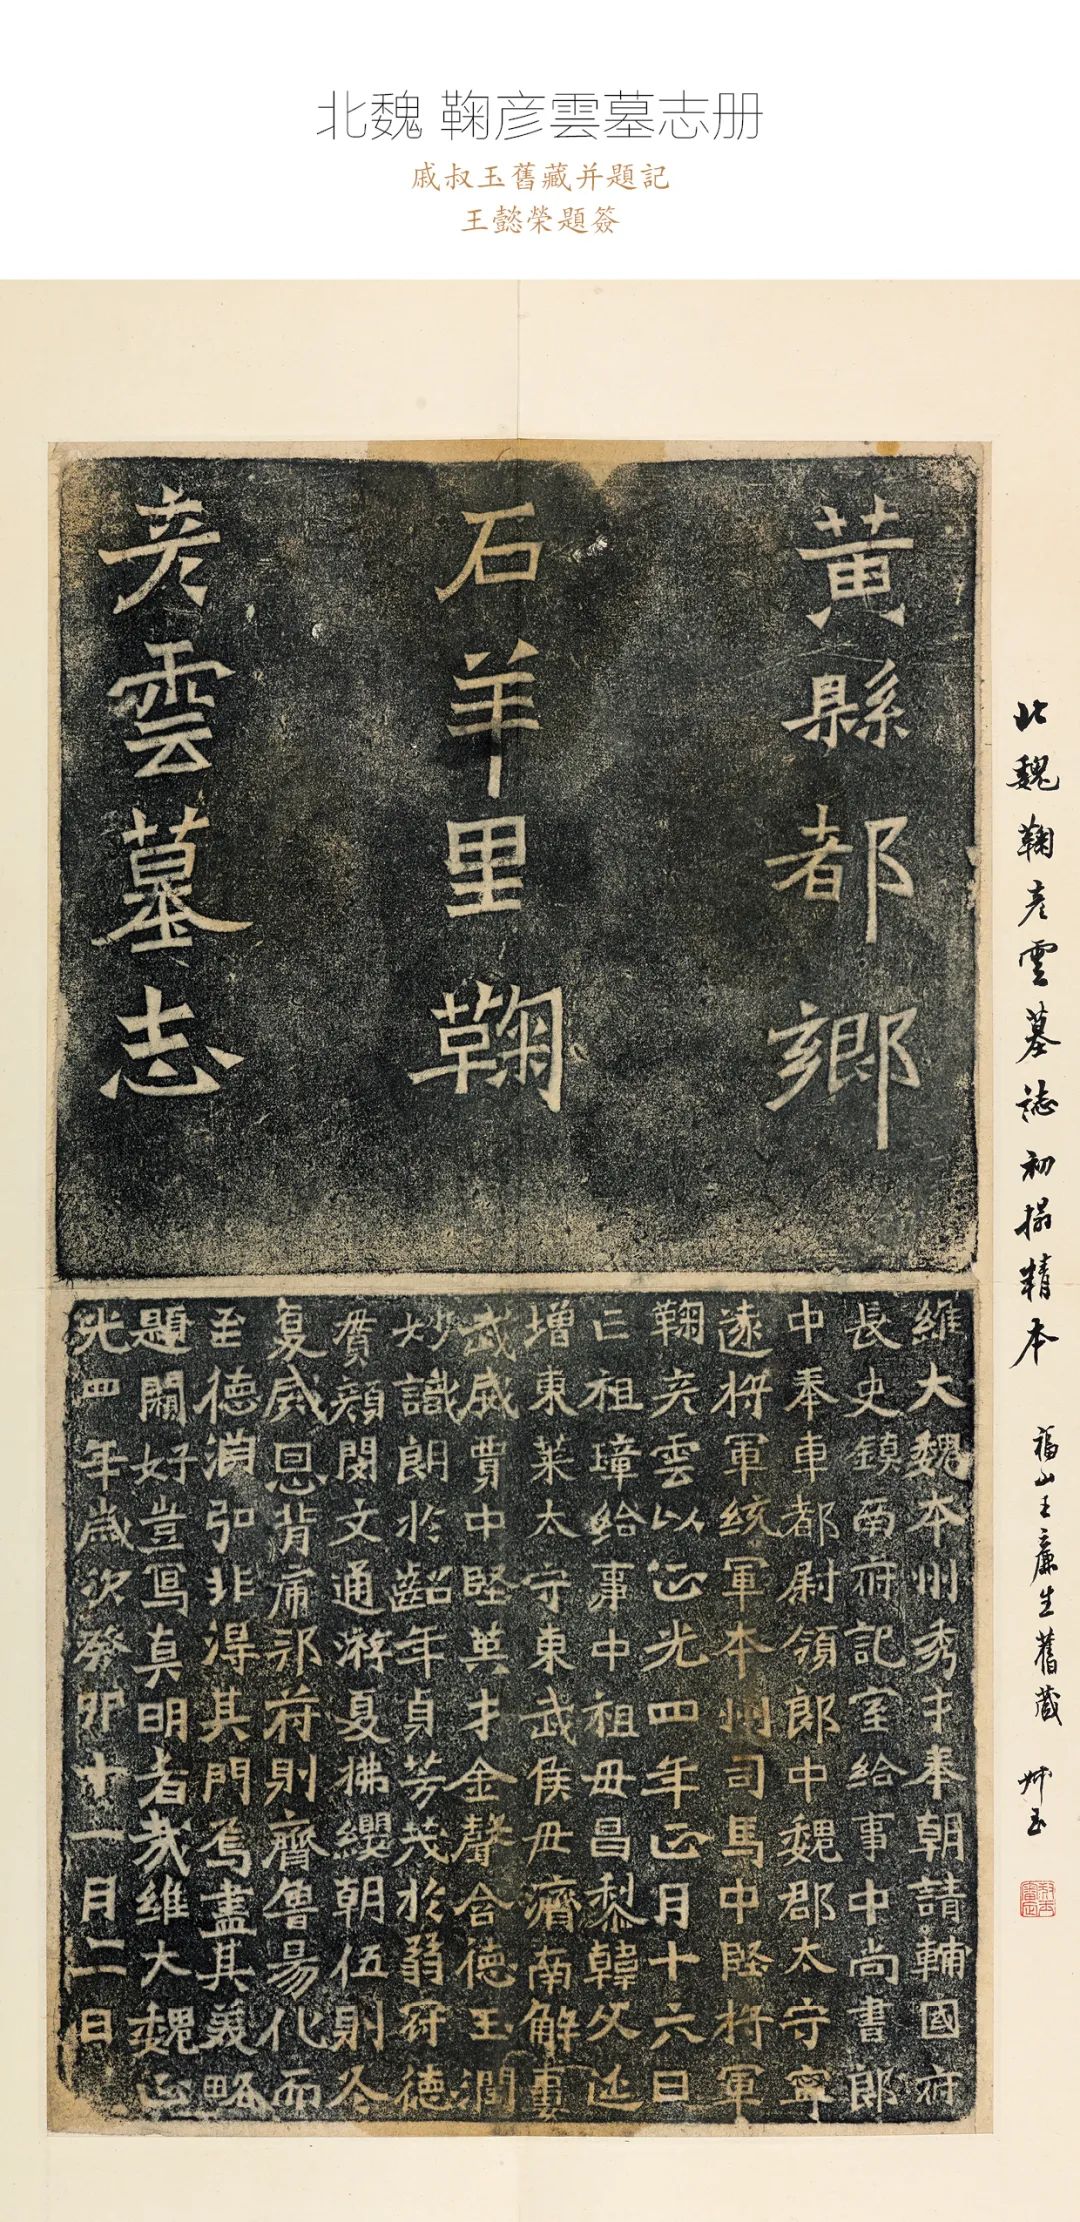 北魏 鞠彦雲墓志册
戚叔玉舊藏并題記
王懿榮題簽
北魏鞠彦雲墓誌初搨精本 福山王廉生舊藏 叔玉
黃縣都鄉
石羊里鞠
彦雲墓志
維大魏本州秀才奉朝請輔國府
長史鎮南府記室給事中尚書郎
中奉車都尉領郎中魏郡太守寧
遠將軍統軍本州司馬中堅將軍
鞠彦雲以正光四年正月十六日
亡祖璋給事中祖母昌黎韓父延
增東萊太守東武侯母濟南解妻
武威賈中堅英才金聲含德玉潤
妙識朗於齠年貞芳茂於弱冠德
貫顏閔文通游夏拂纓朝伍則令
夏威恩背庸邪府則齊魯易化而
至德淵弘非得其門焉盡其美略
題關好豈寫真明者哉維大魏正
光四年歲次癸卯十一月二日